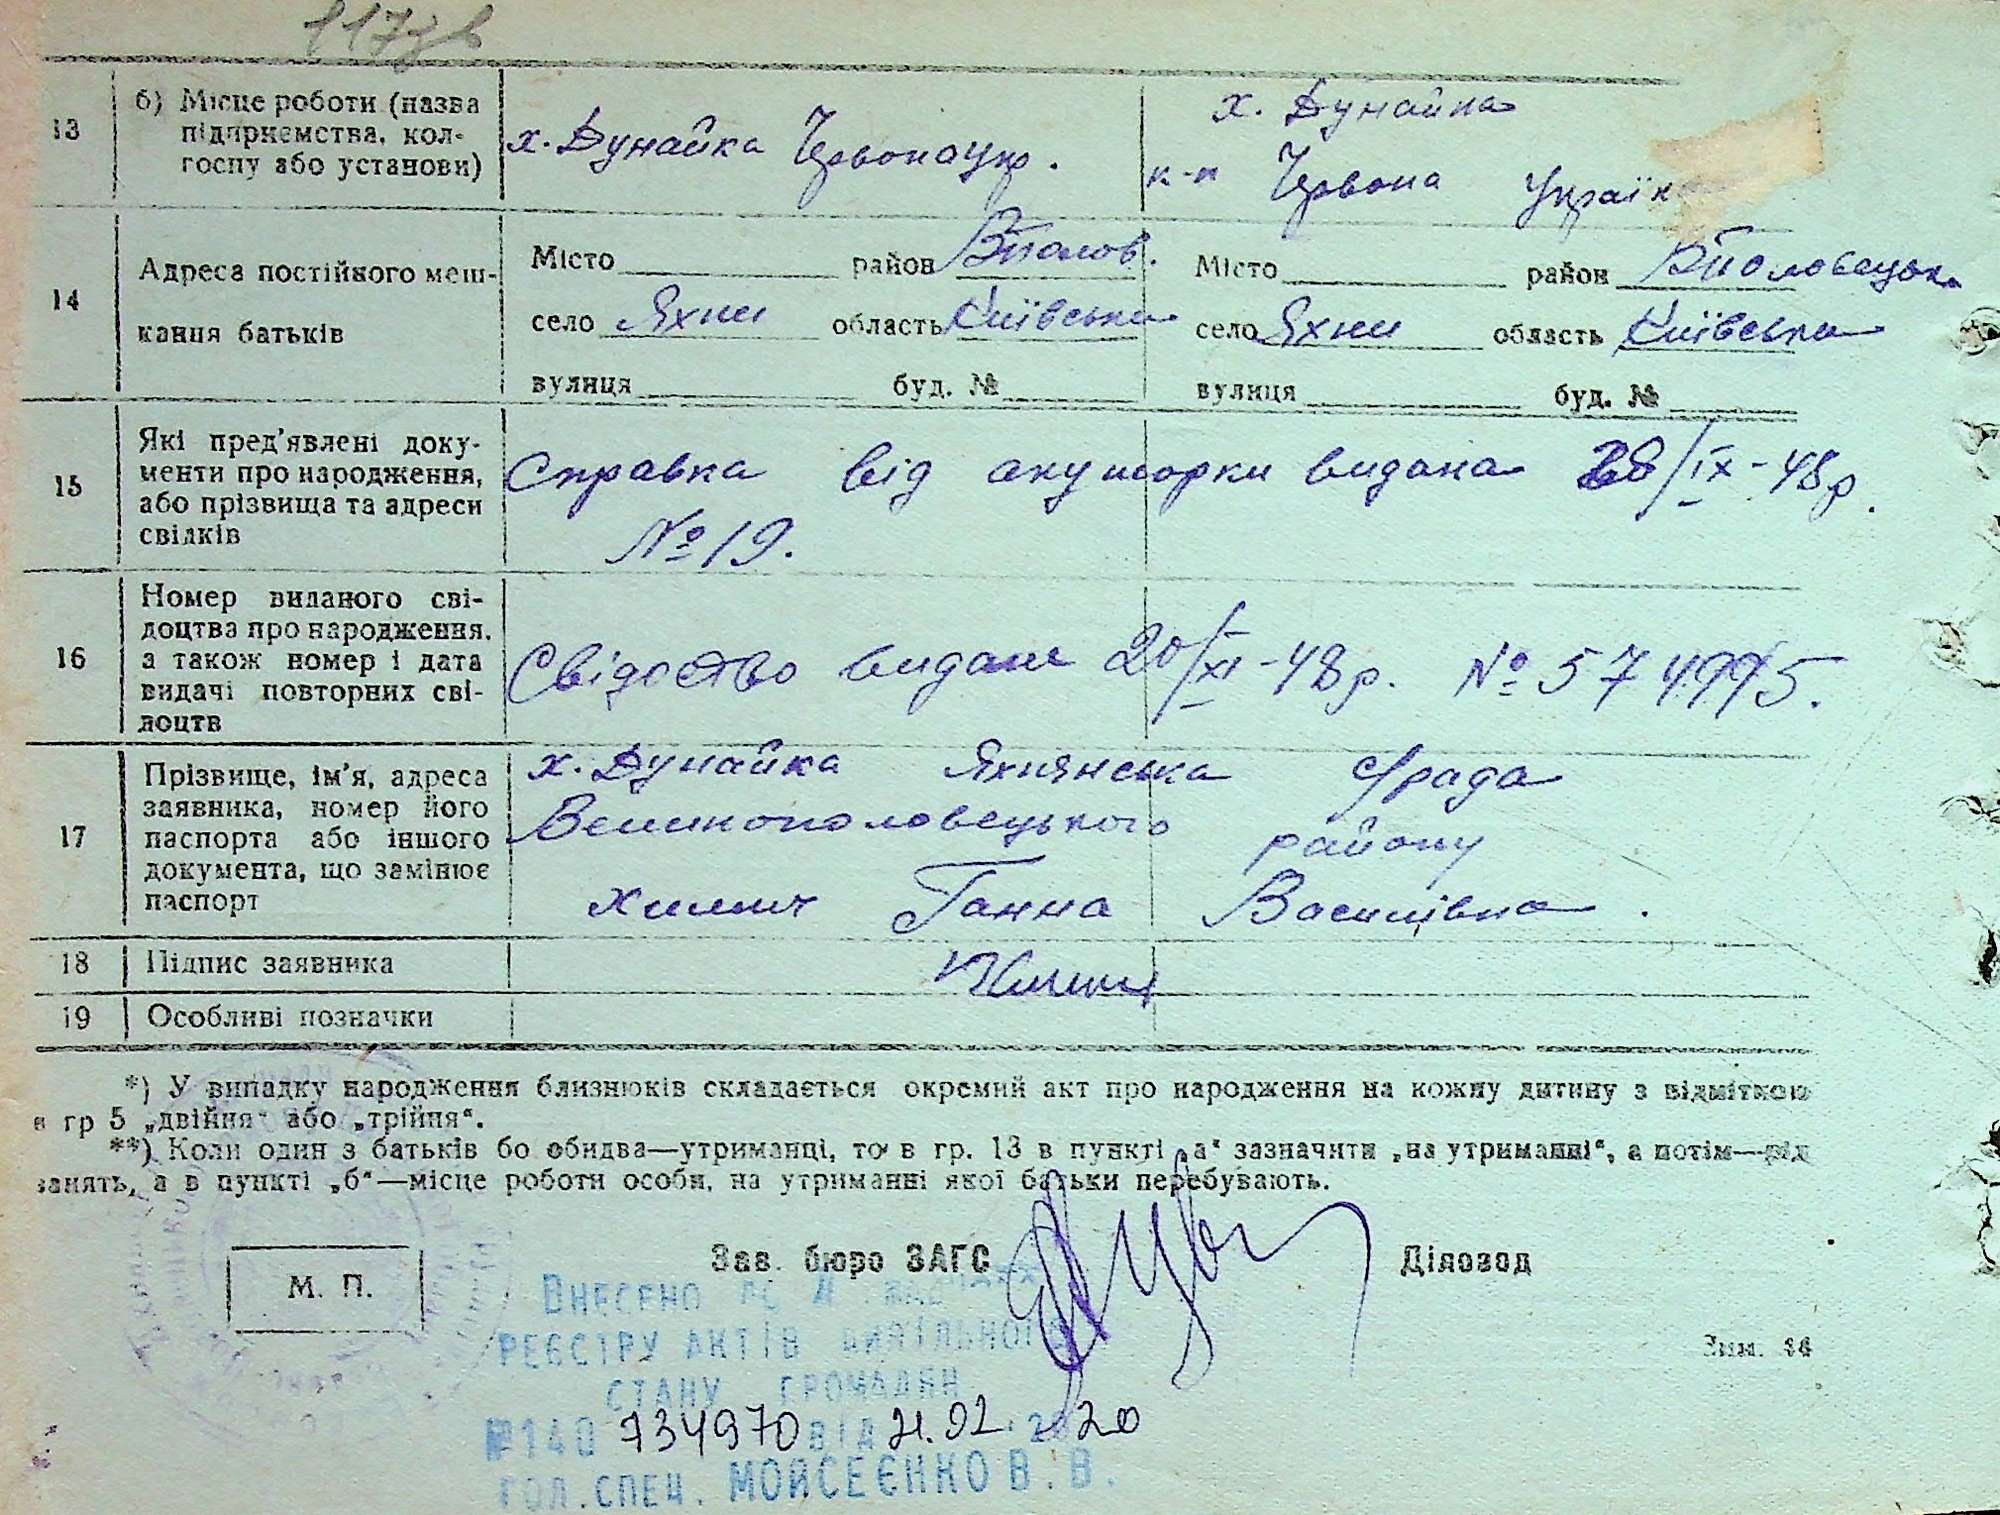 117зв
13
б) Місце роботи (назва
підприємства, кол-
госпу або установи)
х. Дунайка Червоноукр.
х. Дунайка
к-п Червона Україн
14
Адреса постійного меш-
кання батьків
Місто район Вполов.
село Яхни область Київська
вулиця буд. №
Місто район Вполовецьк.
село Яхни область Київська
вулиця буд. №
15
Які пред'явлені доку-
менти про народження,
або прізвища та адреси
свідків
Справка від акушорки видана 28/IX-48р.
№19.
16
Номер виданого сві-
доцтва про народження,
а також номер і дата
видачі повторних сві-
доцтв
Свідоство видане 20/XI-48р. №
17
Прізвище, ім'я, адреса
заявника, номер його
паспорта або іншого
документа, що замінює
паспорт
х. Дунайка Яхнянська с/рада
Великополовецького району
Химич Ганна Василівна.
18
Підпис заявника
Химич
19
Особливі позначки
*) У випадку народження близнюків складається окремий акт про народження на кожну дитину з відміткою
в гр 5 „двійня“ або „трійня“.
**) Коли один з батьків бо обидва—утриманці, то в гр. 13 в пункті „а“ зазначити „на утриманні“, а потім—рід
занять, а в пункті „б“—місце роботи особи, на утриманні якої батьки перебувають.
М. П.
Зав. бюро ЗАГС
Діловод
Внесено до
реєстру актів цивільного
стану громадян
№140 734970 від 21.02.2020
гол.спец. Мойсеєнко В.В.